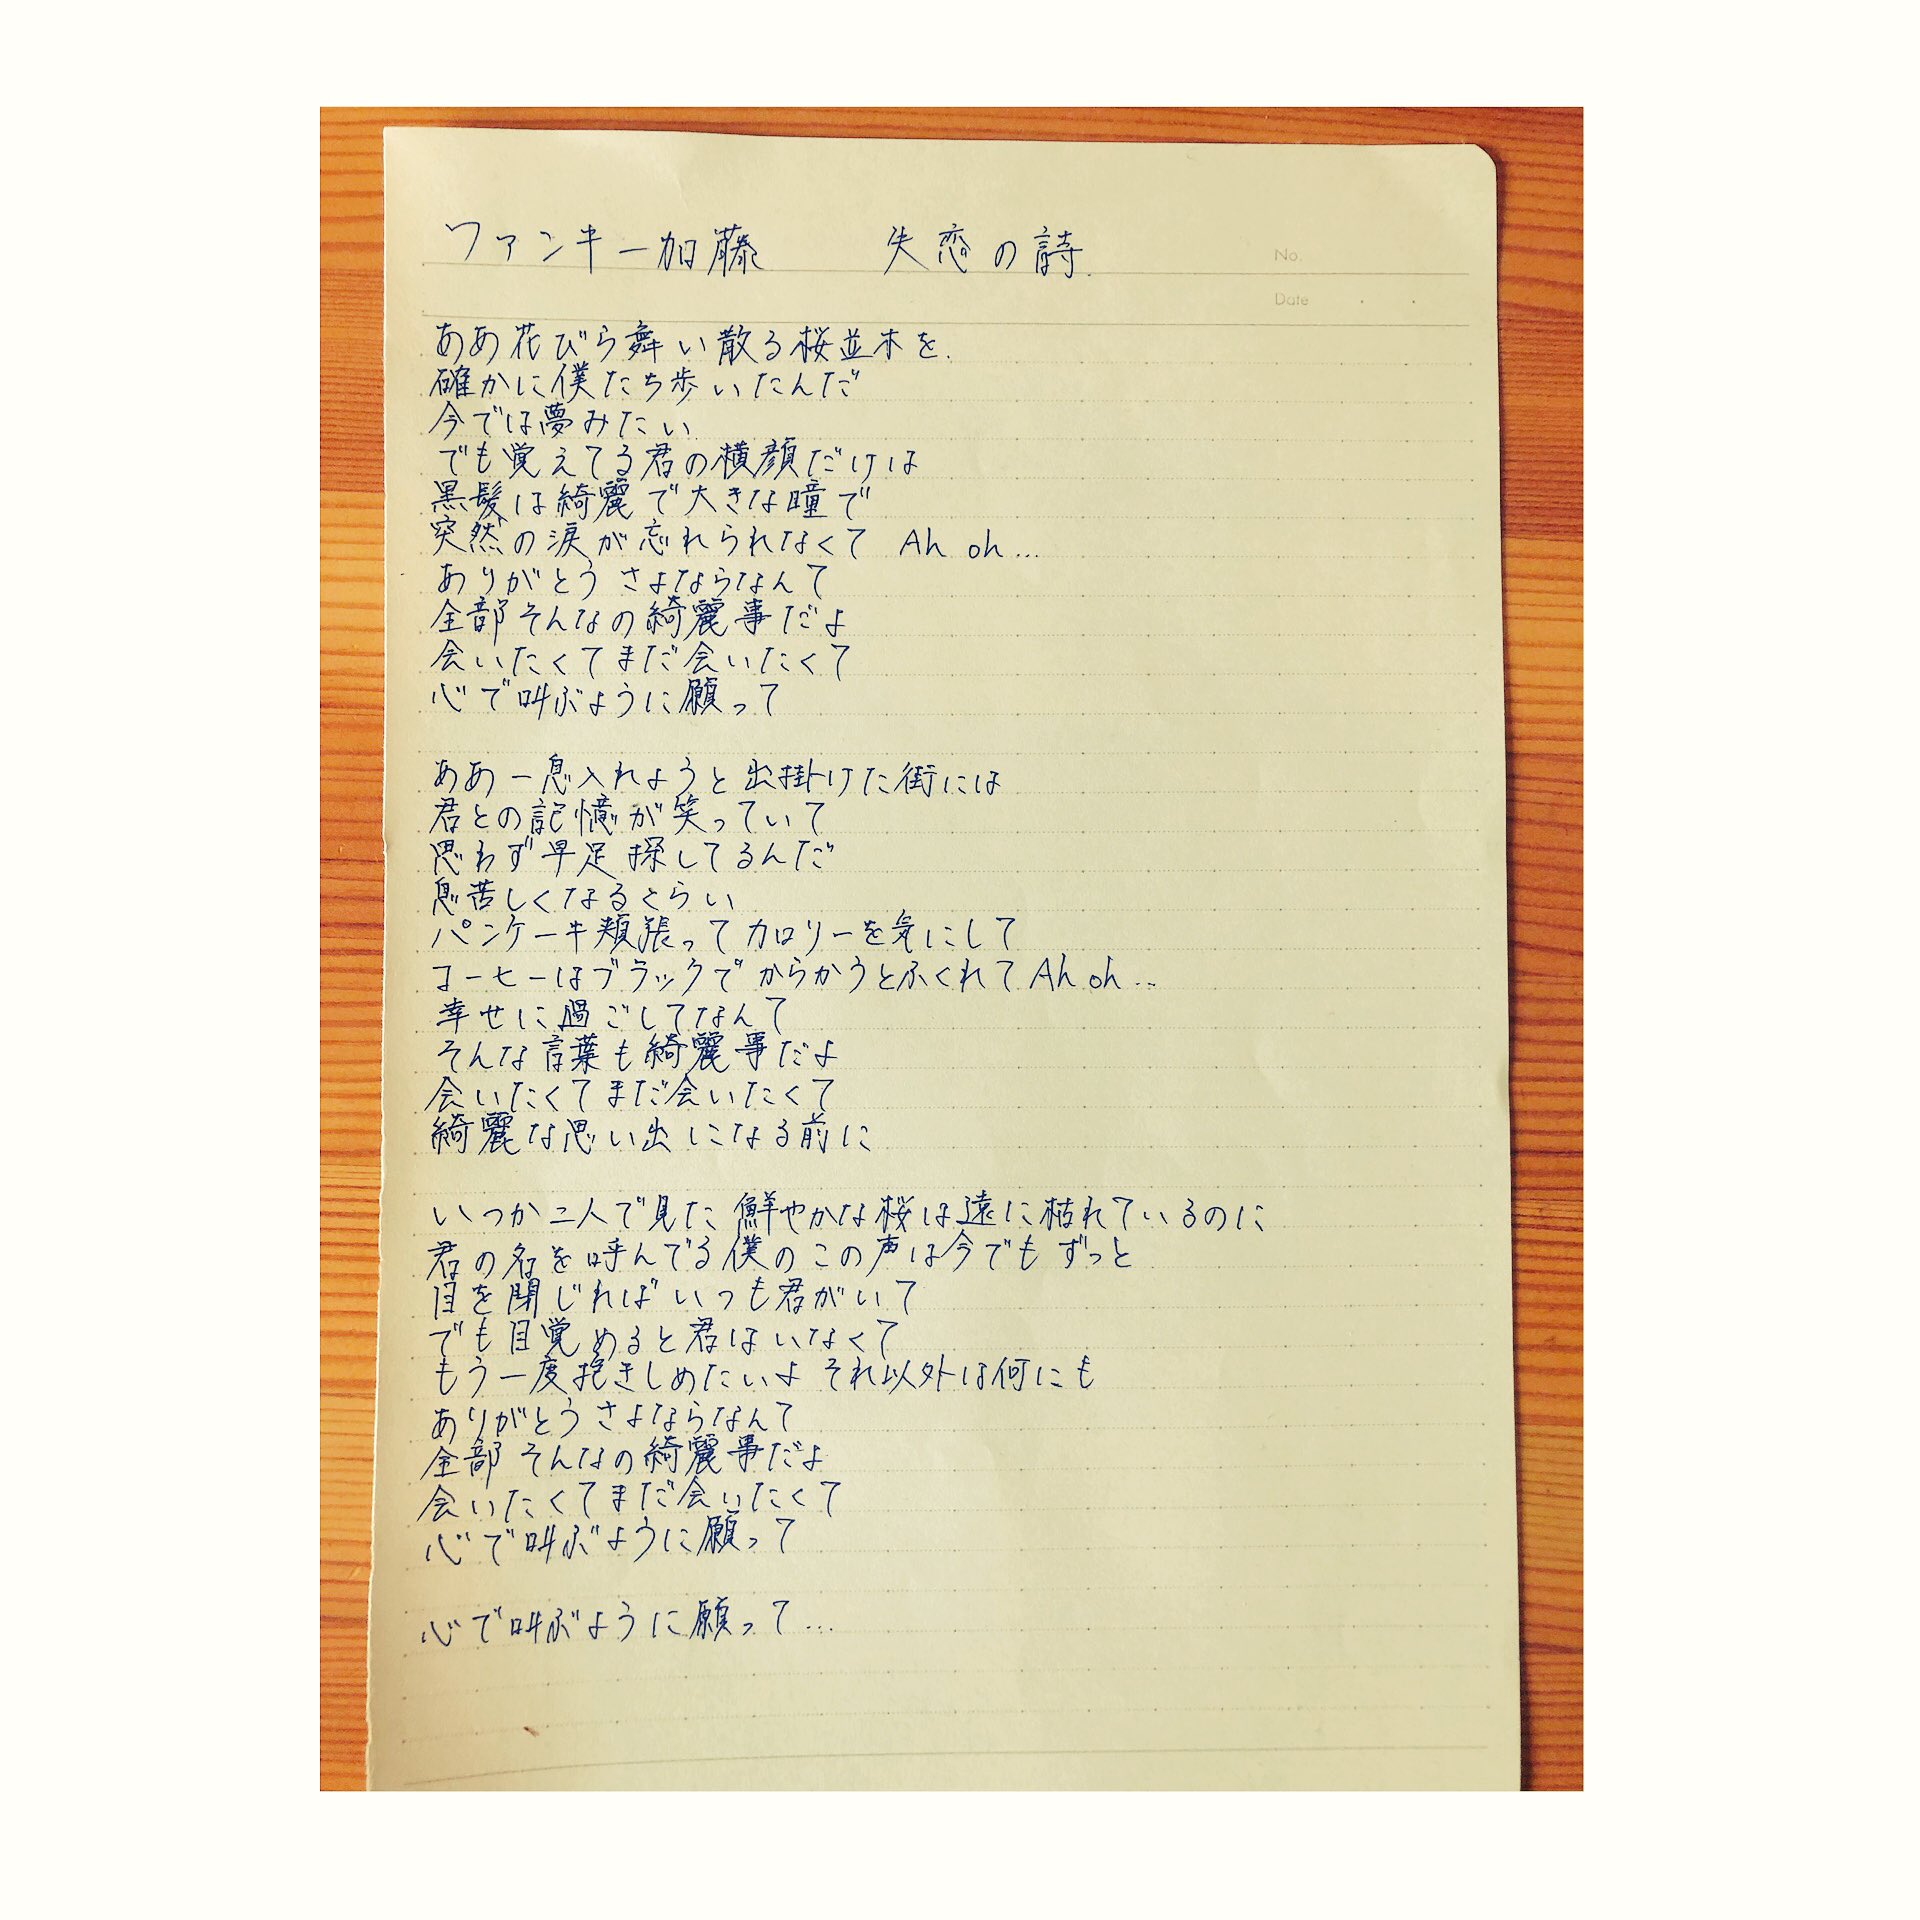 ファンキー加藤 失恋の詩
No.
Date
ああ花びら舞い散る桜並木を
確かに僕たち歩いたんだ
今では夢みたい
でも覚えてる君の横顔だけは
黒髪は綺麗で大きな瞳で
突然の涙が忘れられなくて Ah oh...
ありがとう さよならなんて
全部そんなの綺麗事だよ
会いたくてまだ会いたくて
心で叫ぶように願って
ああ一息入れようと出掛けた街には
君との記憶が笑っていて
思わず早足 探してるんだ
息苦しくなるくらい
パンケーキ頬張ってカロリーを気にして
コーヒーはブラックで からかうとふくれて Ah oh...
幸せに過ごしてなんて
そんな言葉も綺麗事だよ
会いたくてまだ会いたくて
綺麗な思い出になる前に
いつか二人で見た 鮮やかな桜は遠に枯れているのに
君の名を呼んでる僕のこの声は今でもずっと
目を閉じればいつも君がいて
でも目覚めると君はいなくて
もう一度抱きしめたいよ それ以外は何にも
ありがとう さよならなんて
全部そんなの綺麗事だよ
会いたくてまだ会いたくて
心で叫ぶように願って
心で叫ぶように願って...